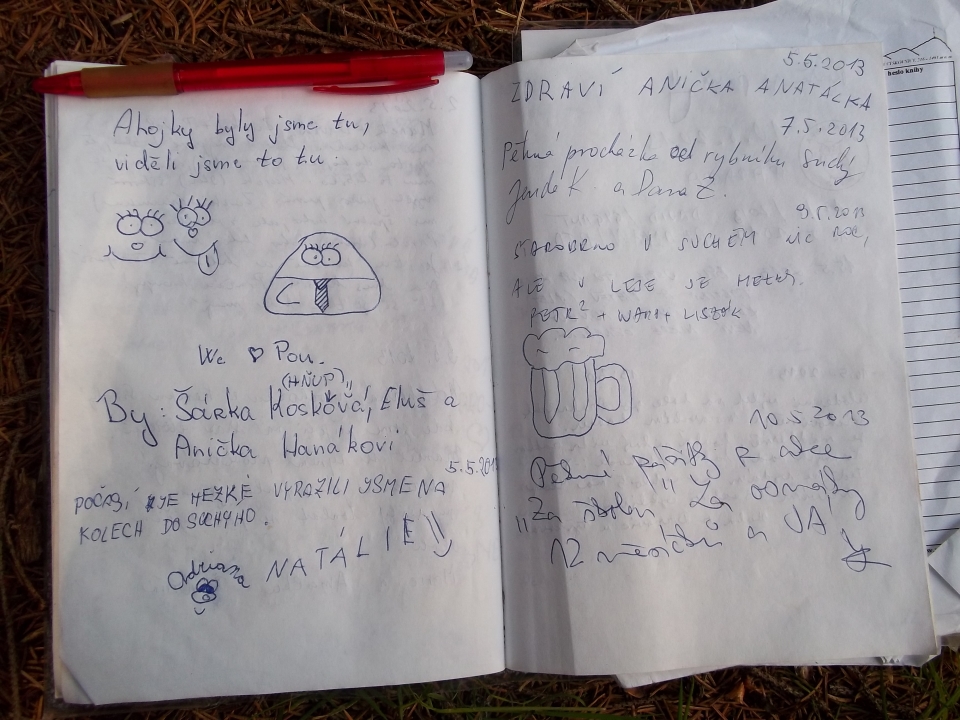 Ahojky byly jsme tu,
viděli jsme to tu:
We ♥ Pou.
(HŇUP)
By: Šárka Kosková, Eluš a
Anička Hanákovi
5.5.2013
POČASÍ, JE HEZKÉ VYRAZILI JSME NA
KOLECH DO SUCHÝHO.
Adriana NATÁLIE
5.5.2013
ZDRAVÍ ANIČKA A NATÁLKA
7.5.2013
Pěkná procházka od rybníku Suchý
Jenda K. a Dana Z.
9.5.2013
STAROBRNO V SUCHÉM NIC MOC,
ALE V LESE JE HEZKY.
PETR² +
10.5.2013
Pěkné z akce
"Za
12 měsíčků a JÁ
heslo knihy